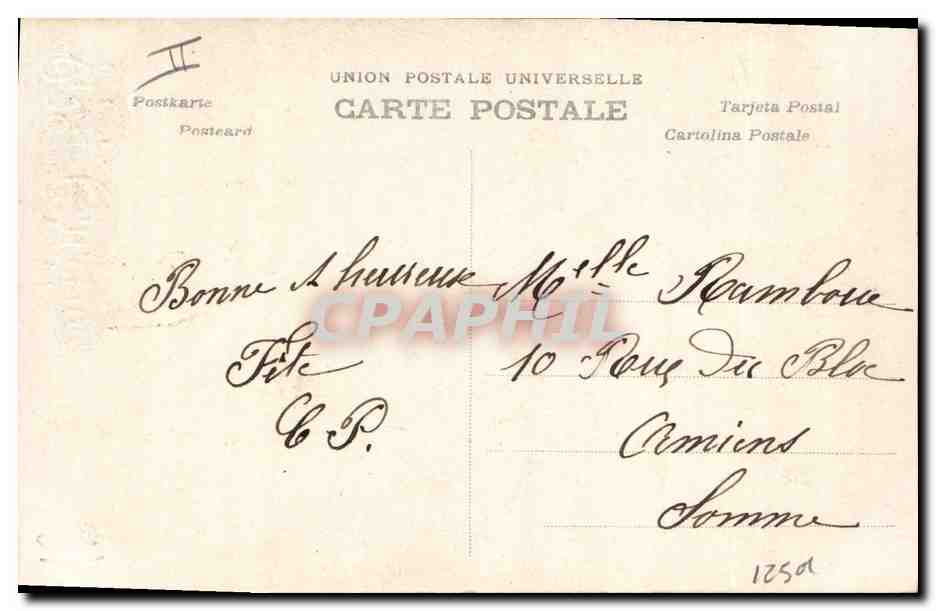 II
UNION POSTALE UNIVERSELLE
Postkarte
CARTE POSTALE
Tarjeta Postal
Postcard
Cartolina Postale
Bonne & heureuse
Fête
C P.
Melle Ramboue
10 Rue Du Bloc
Amiens
Somme
CPAPHIL
125d